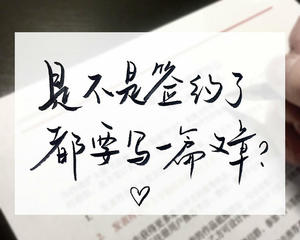 是不是签约了
都要写一篇文章?
♡